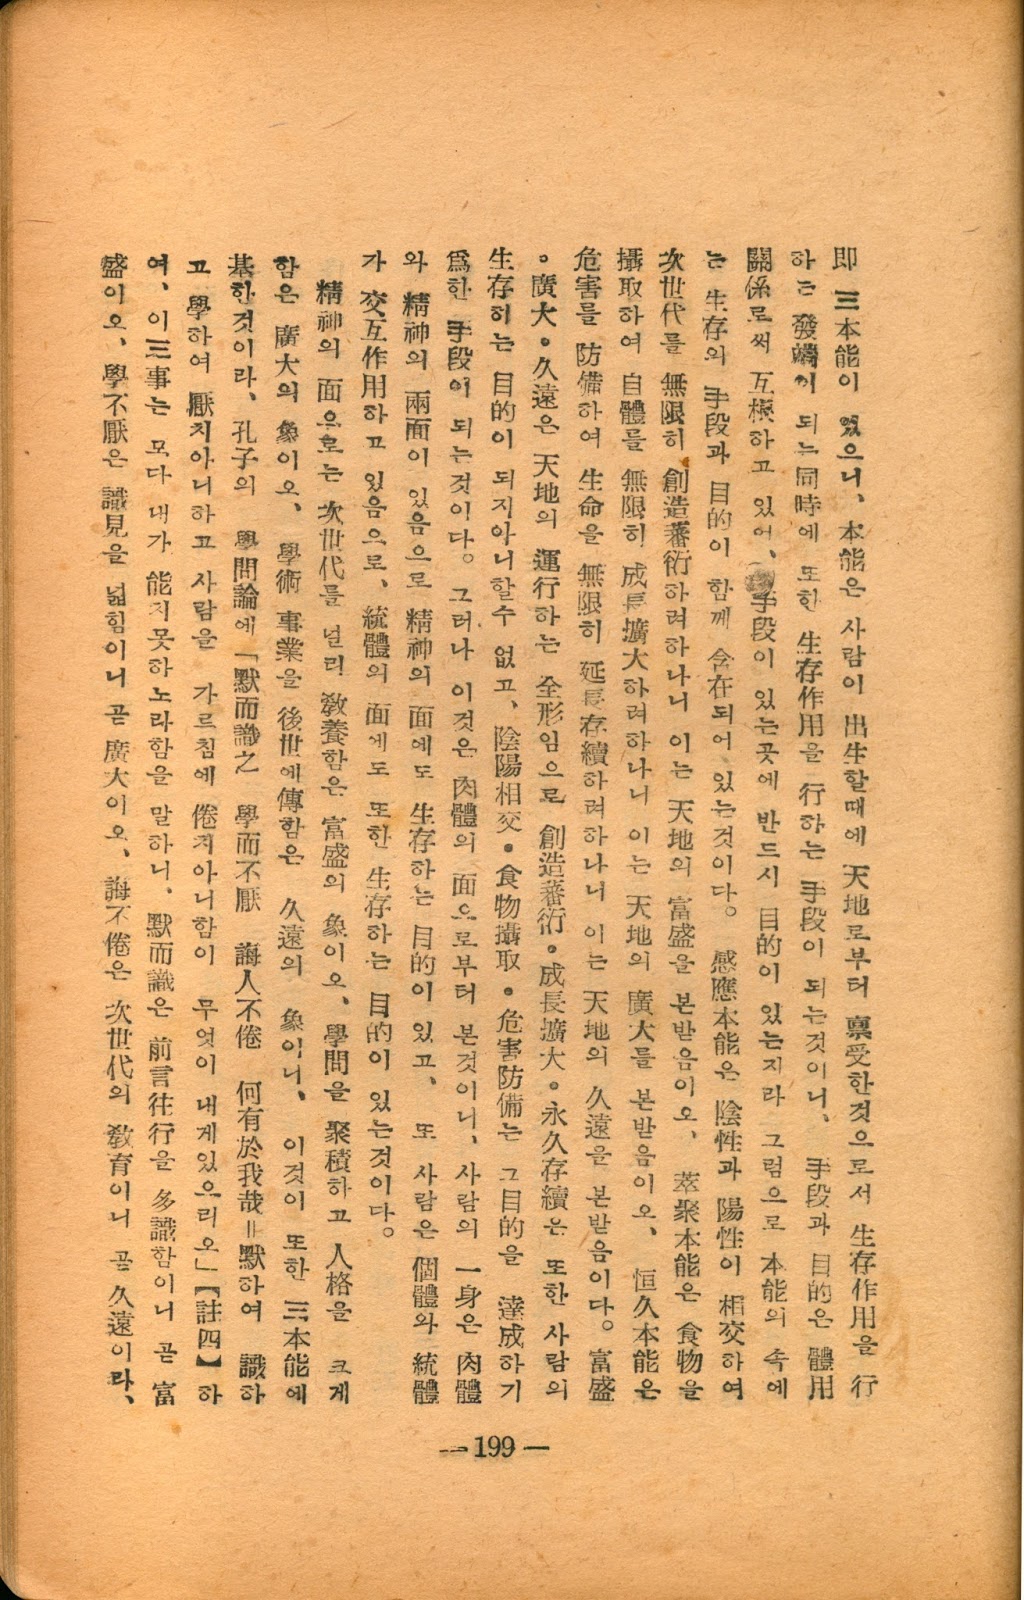 即 三本能이 있으니、本能은 사람이 出生할때에 天地로부터 禀受한것으로서 生存作用을 行
하는 發端이 되는同時에 또한 生存作用을 行하는 手段이 되는것이니、 手段과 目的은 體用
關係로써 互根하고 있어、手段이 있는곳에 반드시 目的이 있는지라 그럼으로 本能의 속에
는 生存의 手段과 目的이 함께 含在되어 있는것이다。 感應本能은 陰性과 陽性이 相交하여
次世代를 無限히 創造蕃衍하려하나니 이는 天地의 富盛을 본받음이오、 萃聚本能은 食物을
攝取하여 自體를 無限히 成長壙大하려하나니 이는 天地의 廣大를 본받음이오、 恒久本能은
危害를 防備하여 生命을 無限히 延長存續하려하나니 이는 天地의 久遠을 본받음이다。富盛
•廣大•久遠은 天地의 運行하는 全形임으로 創造蕃衍•成長壙大•永久存續은 또한 사람의
生存하는 目的이 되지아니할수 없고、陰陽相交•食物攝取•危害防備는 그目的을 達成하기
爲한 手段이 되는것이다。그러나 이것은 肉體의 面으로부터 본것이니、사람의 一身은 肉體
와 精神의 兩面이 있음으로 精神의 面에도 生存하는 目的이 있고、 또 사람은 個體와 統體
가 交互作用하고 있음으로、統體의 面에도 또한 生存하는 目的이 있는것이다。
精神의 面으로는 次世代를 널리 敎養함은 富盛의 象이오、學問을 聚積하고 人格을 크게
함은 廣大의 象이오、 學術 事業을 後世에傳함은 久遠의 象이니、 이것이 또한 三本能에
基한것이라、孔子의 學問論에「默而識之 學而不厭 誨人不倦 何有於我哉॥默하여 識하
고 學하여 厭치아니하고 사람을 가르침에 倦치아니함이 무엇이 내게있으리오」【註四】하
여、이三事는 모다 내가 能치못하노라함을 말하니、默而識은 前言往行을 多識함이니 곧 富
盛이오、學不厭은 識見을 넓힘이니 곧 廣大이오、誨不倦은 次世代의 敎育이니 곧 久遠이라、
— 199 —